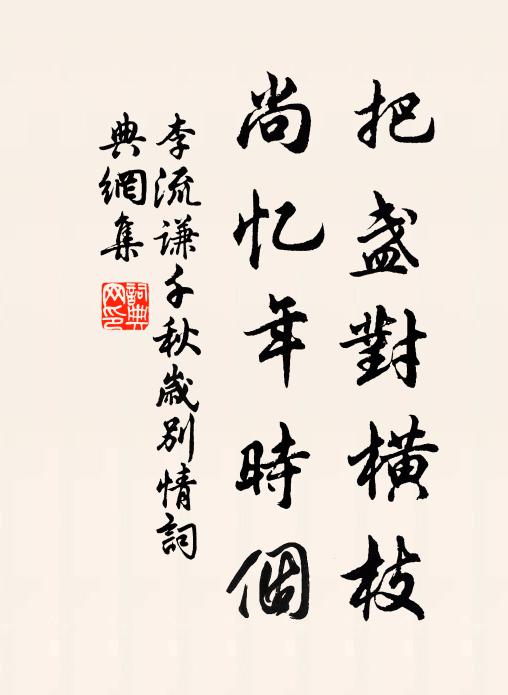 把盏對橫枝
尚忆年時個
李流谦千秋歲别情詞
典網集
詞典网印